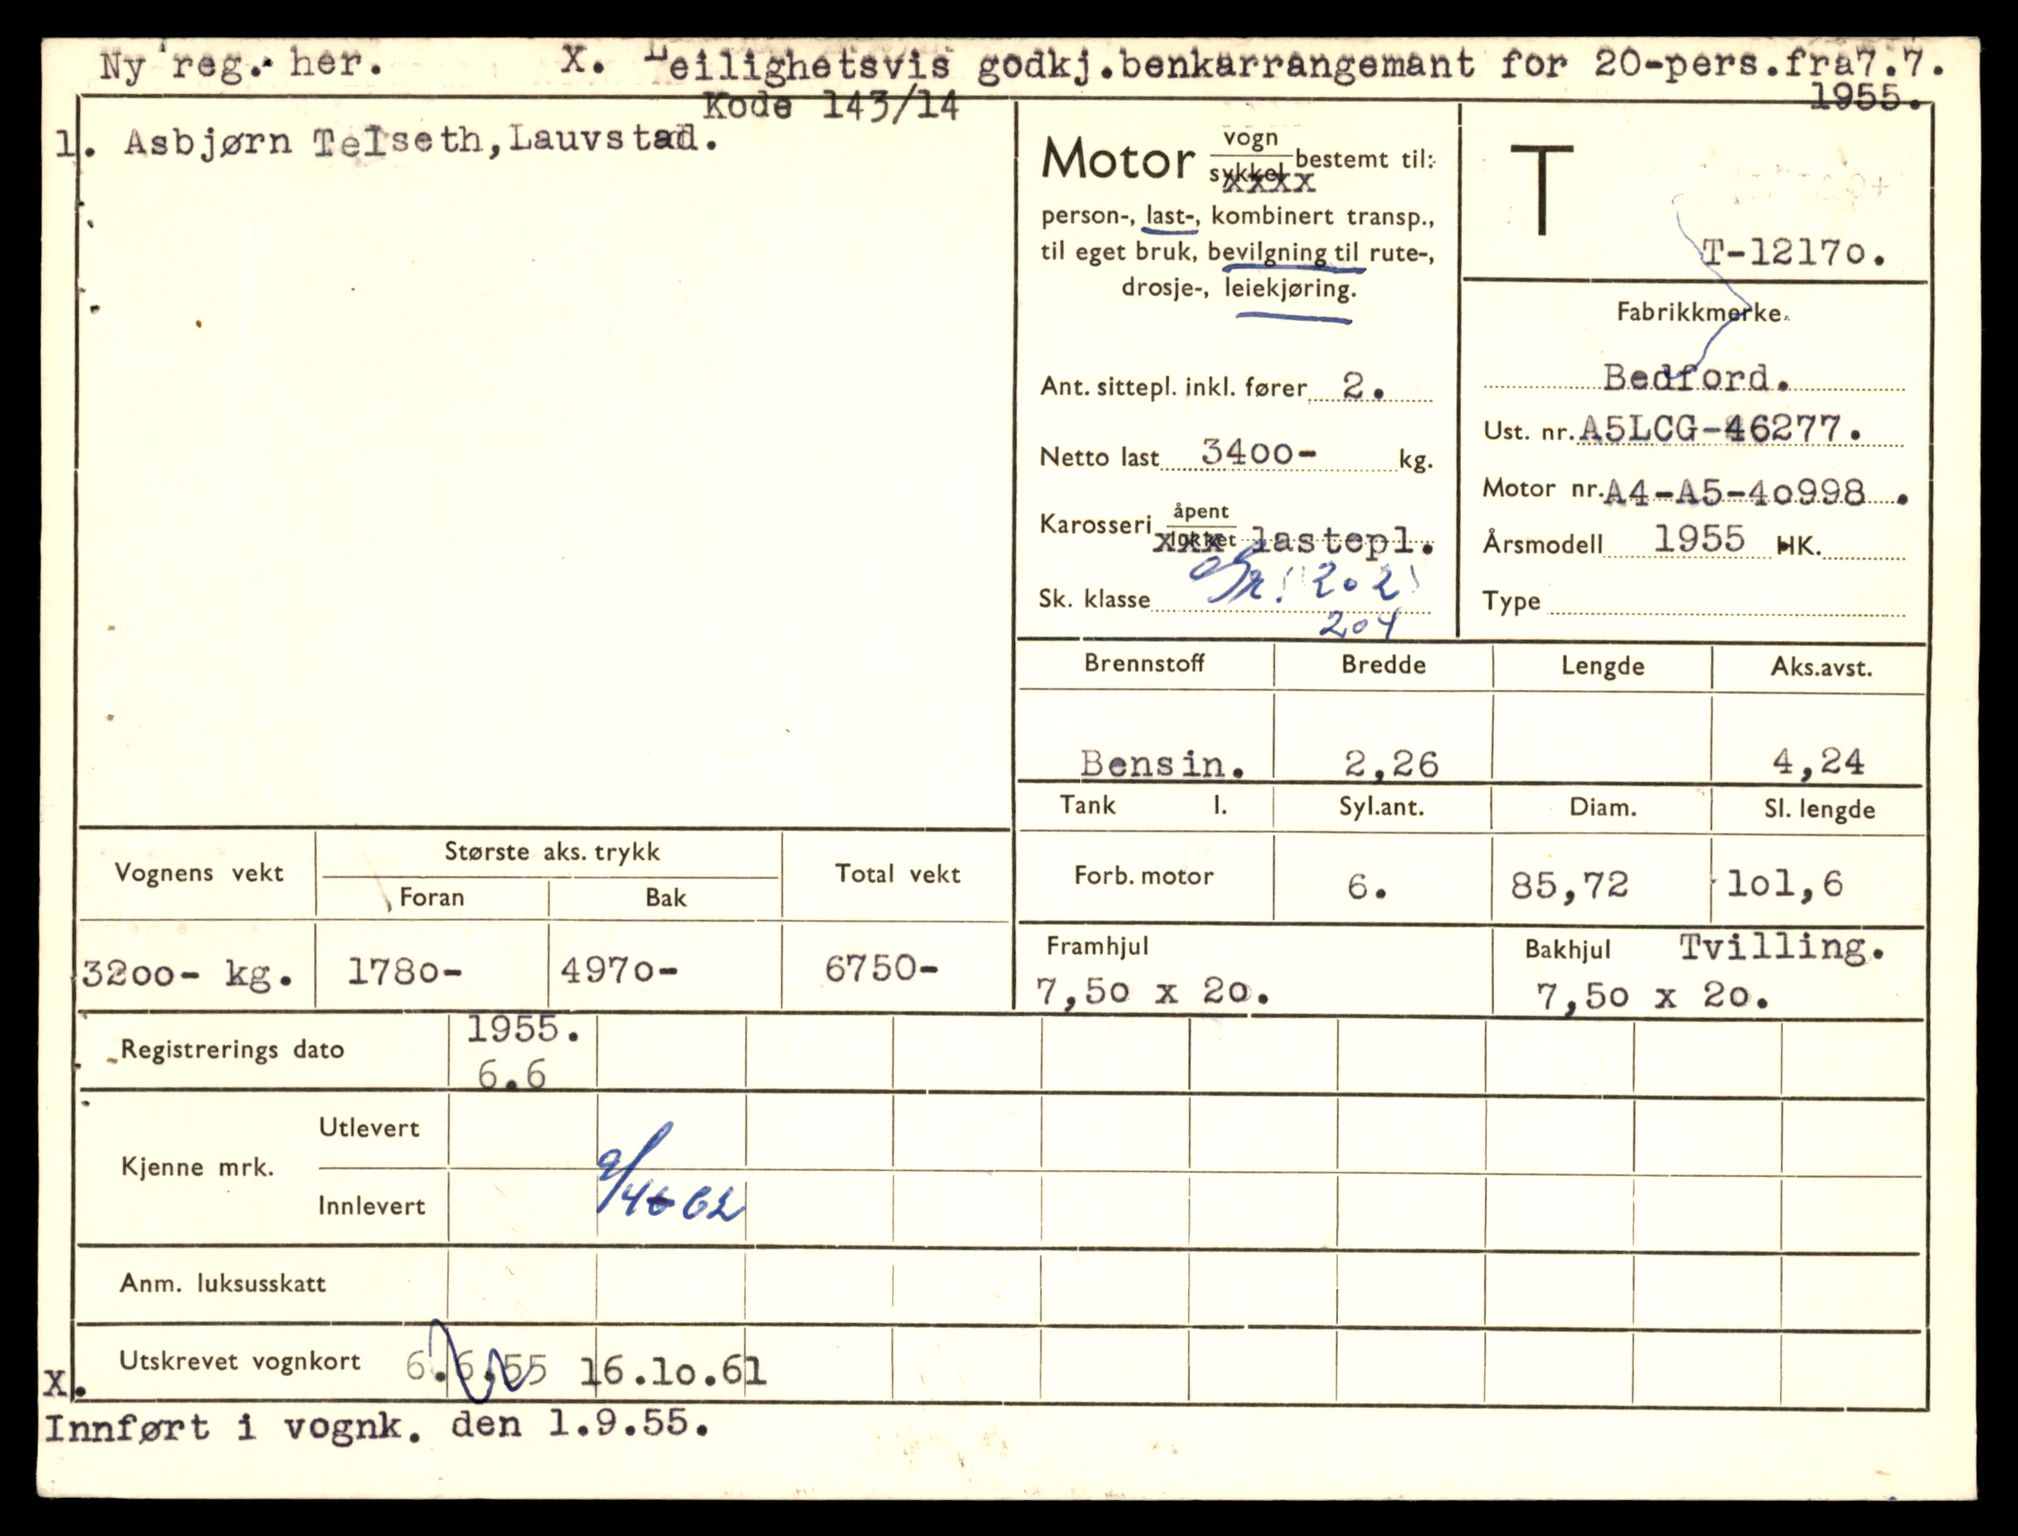 Ny reg. her. X. Leilighetsvis godkj.benkarrangemant for 20-pers.fra7.7.
1955.
Kode 143/14
1. Asbjørn Telseth,Lauvstad.
Motor vogn
sykkel bestemt til:
xxxx
person-, last-, kombinert transp.,
til eget bruk, bevilgning til rute-,
drosje-, leiekjøring.
Ant. sittepl. inkl. fører 2.
Netto last 3400- kg.
Karosseri åpent
lukket lastepl.
xxx
Sk. klasse 202
204
T
T-12170.
Fabrikkmerke
Bedford.
Ust. nr. A5LCG-46277.
Motor nr. A4-A5-40998 .
Årsmodell 1955 HK.
Type
Brennstoff Bredde Lengde Aks.avst.
Bensin. 2,26 4,24
Tank l. Syl.ant. Diam. Sl. lengde
Forb. motor 6. 85,72 101,6
Framhjul
7,50 x 20.
Bakhjul Tvilling.
7,50 x 20.
Vognens vekt Største aks. trykk Total vekt
Foran Bak
3200- kg. 1780- 4970- 6750-
Registrerings dato 1955.
6.6
Kjenne mrk. Utlevert
Innlevert 9/4 62
Anm. luksusskatt
Utskrevet vognkort 6.6.55 16.10.61
X.
Innført i vognk. den 1.9.55.